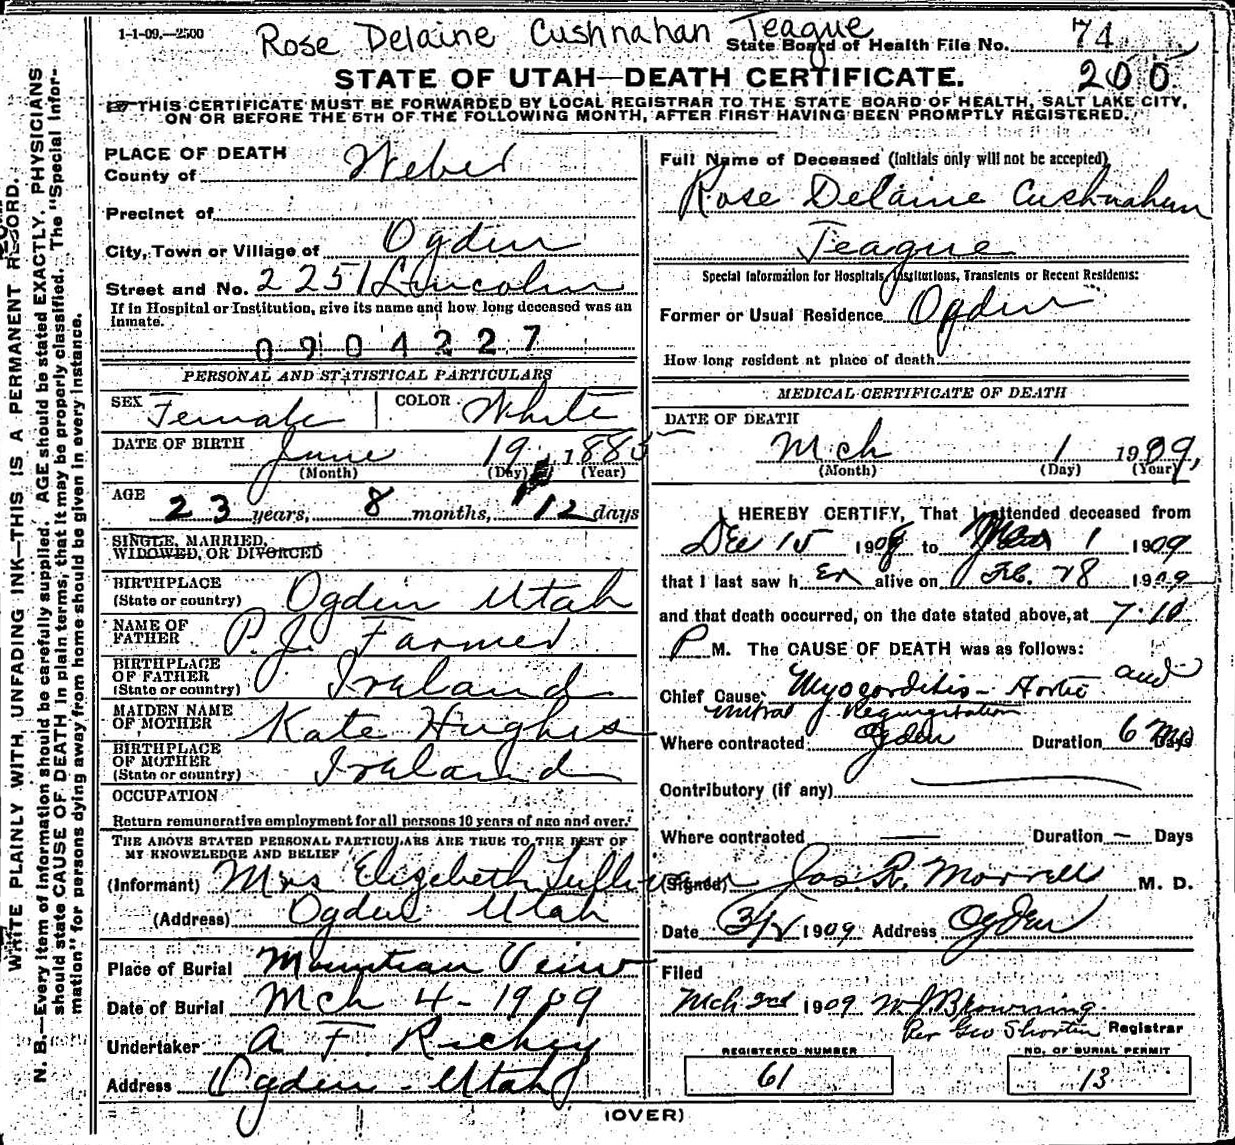 1-1-09.—2500
Rose Delaine Cushnahan Teague
State Board of Health File No. 74
200
STATE OF UTAH—DEATH CERTIFICATE.
THIS CERTIFICATE MUST BE FORWARDED BY LOCAL REGISTRAR TO THE STATE BOARD OF HEALTH, SALT LAKE CITY,
ON OR BEFORE THE 5TH OF THE FOLLOWING MONTH, AFTER FIRST HAVING BEEN PROMPTLY REGISTERED.
WRITE PLAINLY WITH UNFADING INK—THIS IS A PERMANENT RECORD.
N. B.—Every item of information should be carefully supplied. AGE should be stated EXACTLY. PHYSICIANS
should state CAUSE OF DEATH in plain terms, that it may be properly classified. The "Special Infor-
mation" for persons dying away from home should be given in every instance.
PLACE OF DEATH
County of Weber
Precinct of
City, Town or Village of Ogden
Street and No. 2251 Lincoln
If in Hospital or Institution, give its name and how long deceased was an
inmate.
0904227
PERSONAL AND STATISTICAL PARTICULARS
SEX Female COLOR White
DATE OF BIRTH June 19, 1885
(Month) (Day) (Year)
AGE
23 years, 8 months, 12 days
SINGLE, MARRIED,
WIDOWED, OR DIVORCED
BIRTHPLACE
(State or country) Ogden Utah
NAME OF
FATHER P. J. Farmer
BIRTHPLACE
OF FATHER
(State or country) Ireland
MAIDEN NAME
OF MOTHER Kate Hughes
BIRTHPLACE
OF MOTHER
(State or country) Ireland
OCCUPATION
Return remunerative employment for all persons 10 years of age and over.
THE ABOVE STATED PERSONAL PARTICULARS ARE TRUE TO THE BEST OF
MY KNOWLEDGE AND BELIEF
(Informant) Mrs Elizabeth
(Address) Ogden Utah
Place of Burial Mountian View
Date of Burial Mch 4-1909
Undertaker A. F. Richey
Address Ogden - Utah
Full Name of Deceased (Initials only will not be accepted)
Rose Delaine Cushnahan
Teague
Special Information for Hospitals, Institutions, Transients or Recent Residents:
Former or Usual Residence Ogden
How long resident at place of death
MEDICAL CERTIFICATE OF DEATH
DATE OF DEATH
Mch 1 1909,
(Month) (Day) (Year)
I HEREBY CERTIFY, That I attended deceased from
Dec 15 1908 to Mar 1 1909
that I last saw her alive on Feb. 28 1909
and that death occurred, on the date stated above, at 7-10
P M. The CAUSE OF DEATH was as follows:
Chief Cause Myocarditis - Aortic and
mitral Regurgitation
Where contracted Ogden Duration 6 mo Days
Contributory (if any)
Where contracted — Duration — Days
(Signed) Jos. R. Morrell M. D.
Date 3/2 1909 Address Ogden
Filed
Mch 2nd 1909 W J Browning
Per Geo Shorten Registrar
REGISTERED NUMBER
61
NO. OF BURIAL PERMIT
13
(OVER)